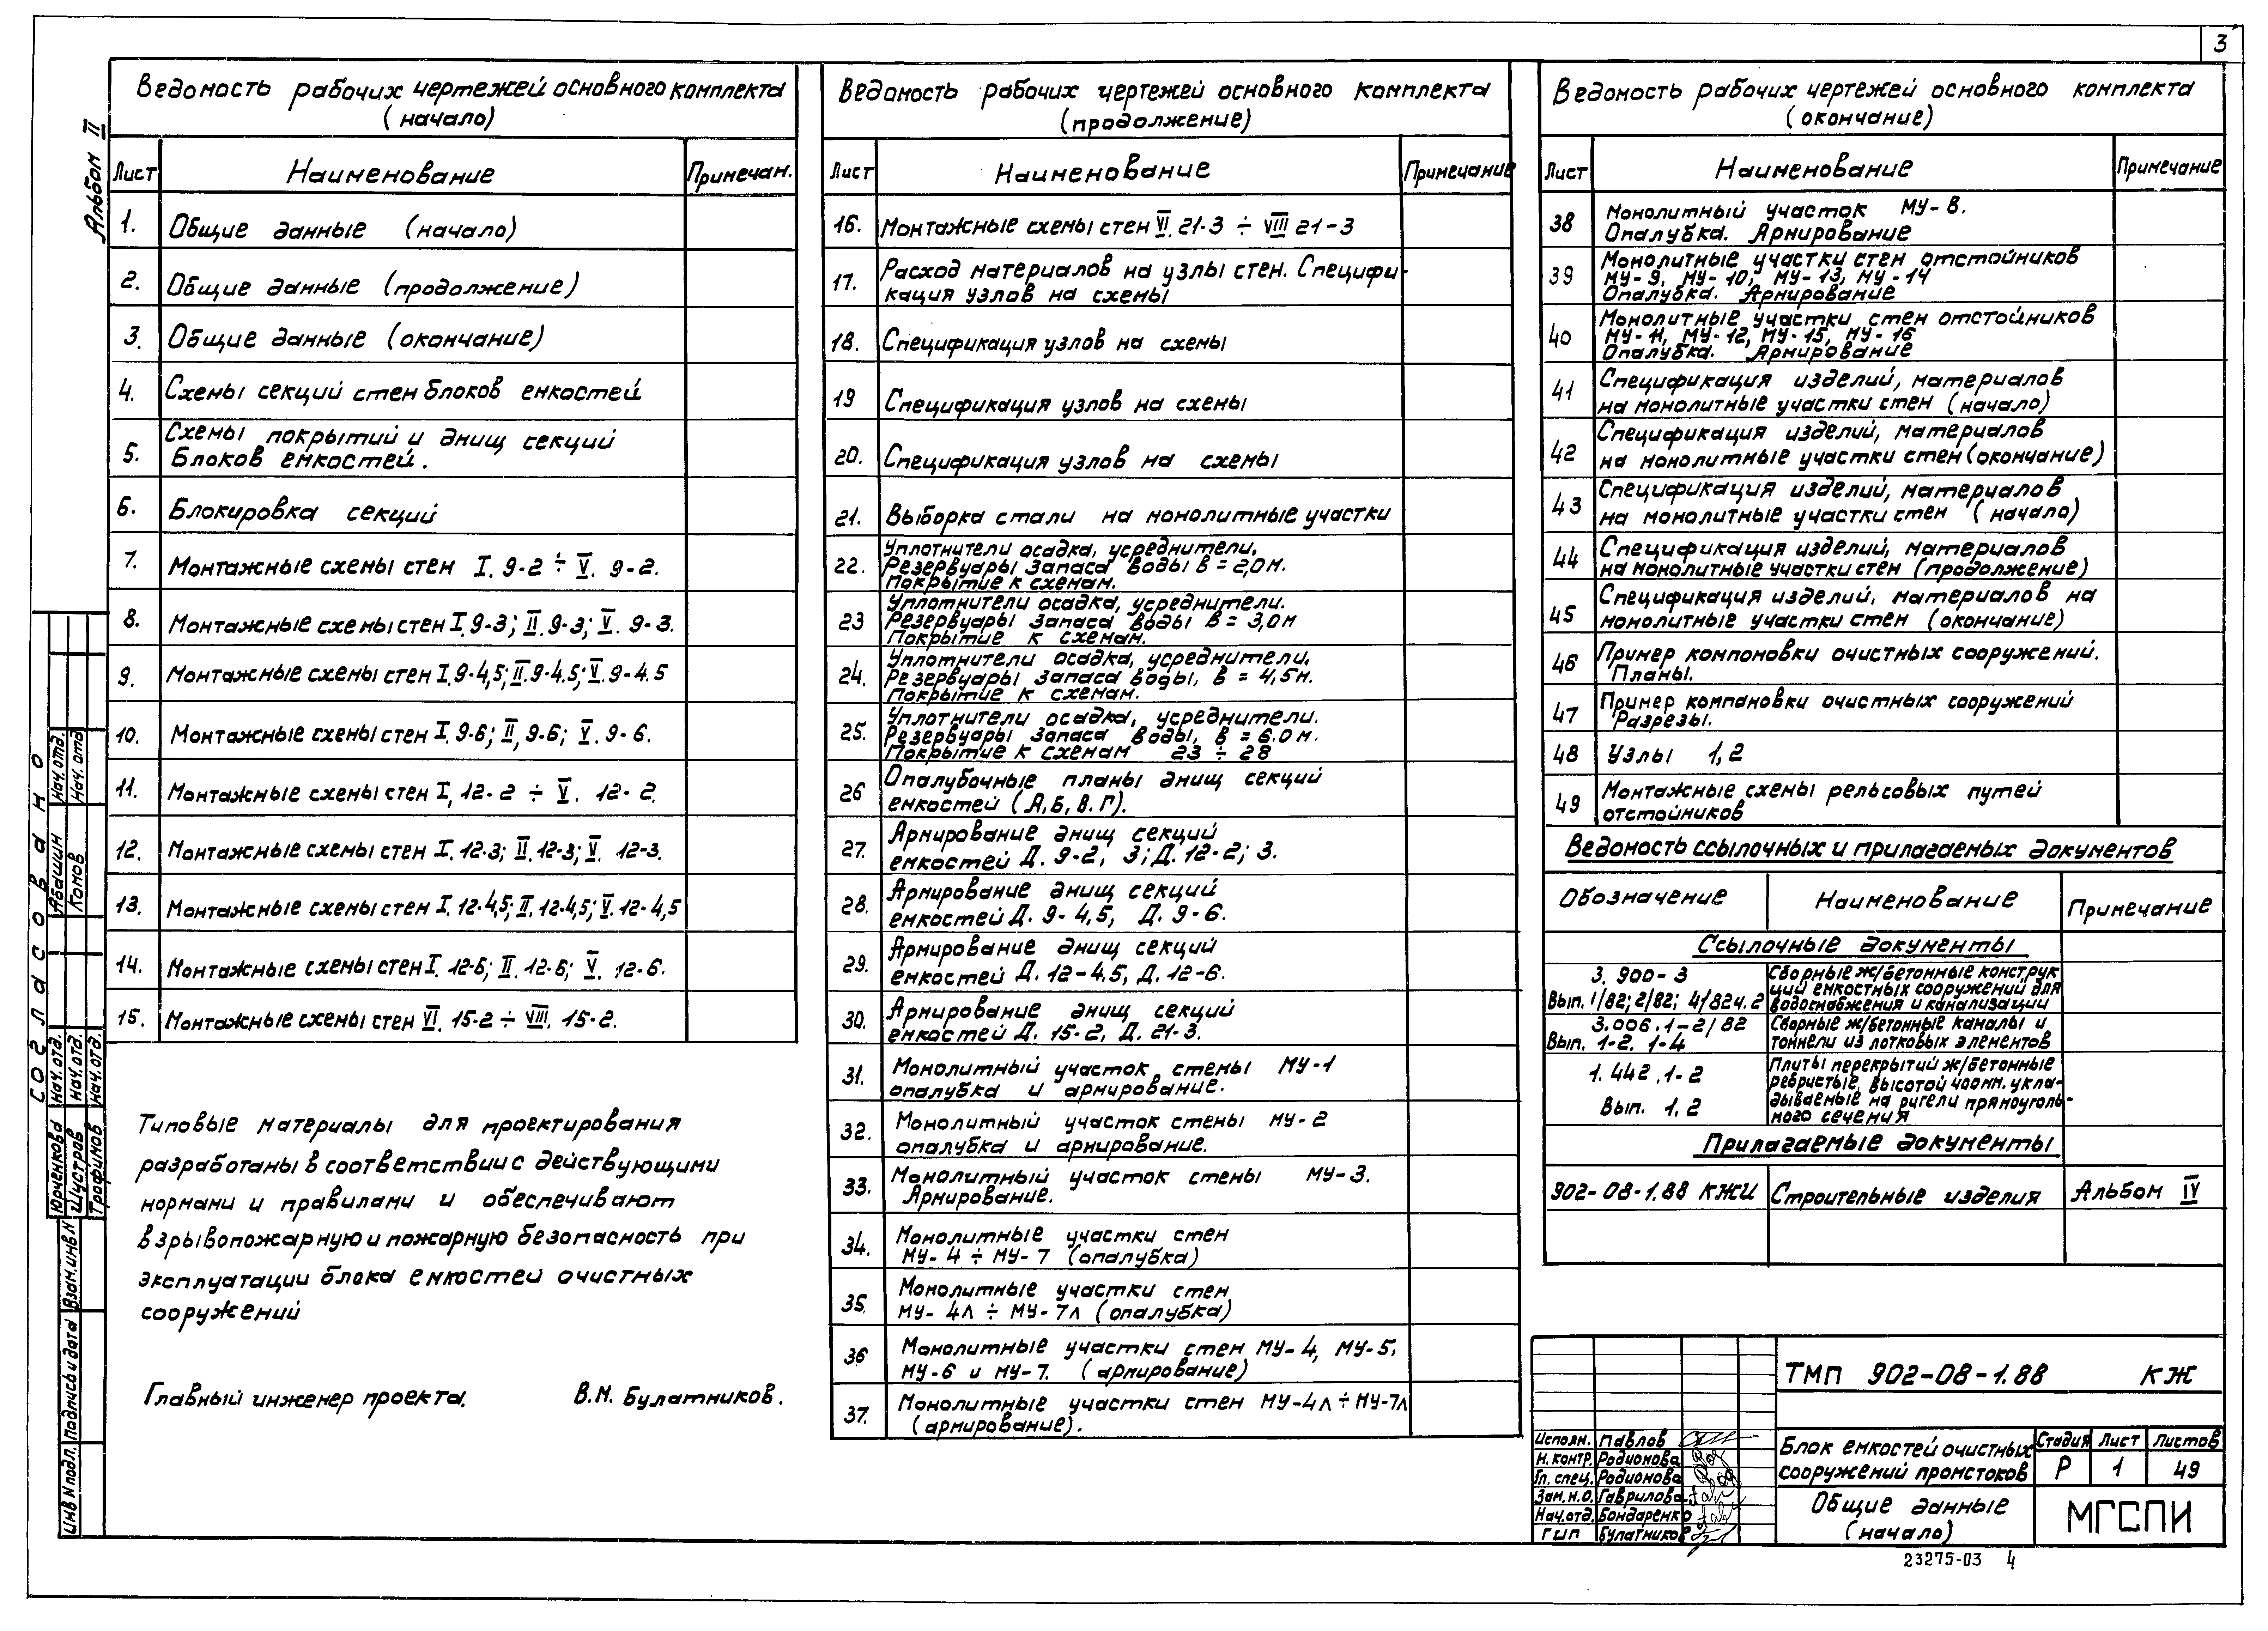 3
Альбом II
Ведомость рабочих чертежей основного комплекта
(начало)
Лист Наименование Примечан.
1. Общие данные (начало)
2. Общие данные (продолжение)
3. Общие данные (окончание)
4. Схемы секций стен блоков емкостей
5. Схемы покрытий и днищ секций
блоков емкостей.
6. Блокировка секций
7. Монтажные схемы стен I. 9-2 ÷ V. 9-2.
8. Монтажные схемы стен I. 9-3; II. 9-3; V. 9-3.
9. Монтажные схемы стен I. 9-4,5; II. 9-4.5; V. 9-4.5
10. Монтажные схемы стен I. 9-6; II, 9-6; V. 9-6.
11. Монтажные схемы стен I, 12-2 ÷ V. 12-2.
12. Монтажные схемы стен I. 12-3; II. 12-3; V. 12-3.
13. Монтажные схемы стен I. 12-4,5; II. 12-4,5; V. 12-4,5
14. Монтажные схемы стен I. 12-6; II. 12-6; V. 12-6.
15. Монтажные схемы стен VI. 15-2 ÷ VIII. 15-2.
Типовые материалы для проектирования
разработаны в соответствии с действующими
нормами и правилами и обеспечивают
взрывопожарную и пожарную безопасность при
эксплуатации блока емкостей очистных
сооружений
Главный инженер проекта. В.М. Булатников.
Ведомость рабочих чертежей основного комплекта
(продолжение)
Лист Наименование Примечание
16. Монтажные схемы стен VI. 21-3 ÷ VIII 21-3
17. Расход материалов на узлы стен. Специфи-
кация узлов на схемы
18. Спецификация узлов на схемы
19 Спецификация узлов на схемы
20. Спецификация узлов на схемы
21. Выборка стали на монолитные участки
22. Уплотнители осадка, усреднители.
Резервуары запаса воды В = 2,0 м.
Покрытие к схемам.
23 Уплотнители осадка, усреднители.
Резервуары запаса воды В = 3,0 м
Покрытие к схемам.
24. Уплотнители осадка, усреднители.
Резервуары запаса воды, В = 4,5 м.
Покрытие к схемам.
25. Уплотнители осадка, усреднители.
Резервуары запаса воды, В = 6.0 м.
Покрытие к схемам 23 ÷ 28
26 Опалубочные планы днищ секций
емкостей (А, Б, В. Г).
27. Армирование днищ секций
емкостей Д. 9-2, 3; Д. 12-2; 3.
28. Армирование днищ секций
емкостей Д. 9-4,5, Д. 9-6.
29. Армирование днищ секций
емкостей Д. 12-4.5, Д. 12-6.
30. Армирование днищ секций
емкостей Д. 15-2, Д. 21-3.
31. Монолитный участок стены МУ-1
опалубка и армирование.
32. Монолитный участок стены МУ-2
опалубка и армирование.
33. Монолитный участок стены МУ-3.
Армирование.
34. Монолитные участки стен
МУ-4 ÷ МУ-7 (опалубка)
35. Монолитные участки стен
МУ-4л ÷ МУ-7л (опалубка)
36 Монолитные участки стен МУ-4, МУ-5,
МУ-6 и МУ-7. (армирование)
37. Монолитные участки стен МУ-4л ÷ МУ-7л
(армирование).
Ведомость рабочих чертежей основного комплекта
(окончание)
Лист Наименование Примечание
38 Монолитный участок МУ-8.
Опалубка. Армирование
39 Монолитные участки стен отстойников
МУ-9, МУ-10, МУ-13, МУ-14
Опалубка. Армирование
40 Монолитные участки стен отстойников
МУ-11, МУ-12, МУ-15, МУ-16
Опалубка. Армирование
41 Спецификация изделий, материалов
на монолитные участки стен (начало)
42 Спецификация изделий, материалов
на монолитные участки стен (окончание)
43 Спецификация изделий, материалов
на монолитные участки стен (начало)
44 Спецификация изделий, материалов
на монолитные участки стен (продолжение)
45 Спецификация изделий, материалов на
монолитные участки стен (окончание)
46 Пример компоновки очистных сооружений.
Планы.
47 Пример компановки очистных сооружений
Разрезы.
48 Узлы 1, 2
49 Монтажные схемы рельсовых путей
отстойников
Ведомость ссылочных и прилагаемых документов
Обозначение Наименование Примечание
Ссылочные документы
3. 900-3
Вып. 1/82; 2/82; 4/82 ч. 2
Сборные ж/бетонные конструк
ций емкостных сооружений для
водоснабжения и канализации
3.006.1-2/82
Вып. 1-2. 1-4
Сборные ж/бетонные каналы и
тоннели из лотковых элементов
1. 442. 1-2
Вып. 1, 2
Плиты перекрытий ж/бетонные
ребристые, высотой 400 мм. укла-
дываемые на ригели прямоуголь-
ного сечения
Прилагаемые документы
902-08-1.88 КЖИ Строительные изделия Альбом IV
ТМП 902-08-1.88 КЖ
Исполн. Павлов
Н. контр. Родионова
Гл. спец. Родионова
Зам. н.о. Гаврилова
Нач. отд. Бондаренко
ГИП Булатников
Блок емкостей очистных
сооружений промстоков
Стадия Лист Листов
Р 1 49
Общие данные
(начало)
МГСПИ
23275-03 4
Согласовано
Нач. отд. Абашин Нач. отд.
Нач. отд. Комов Нач. отд.
Нач. отд. Юрченкова
Нач. отд. Шустров
Нач. отд. Трофимов
Взам. инв N
Подпись и дата
Инв N подл.